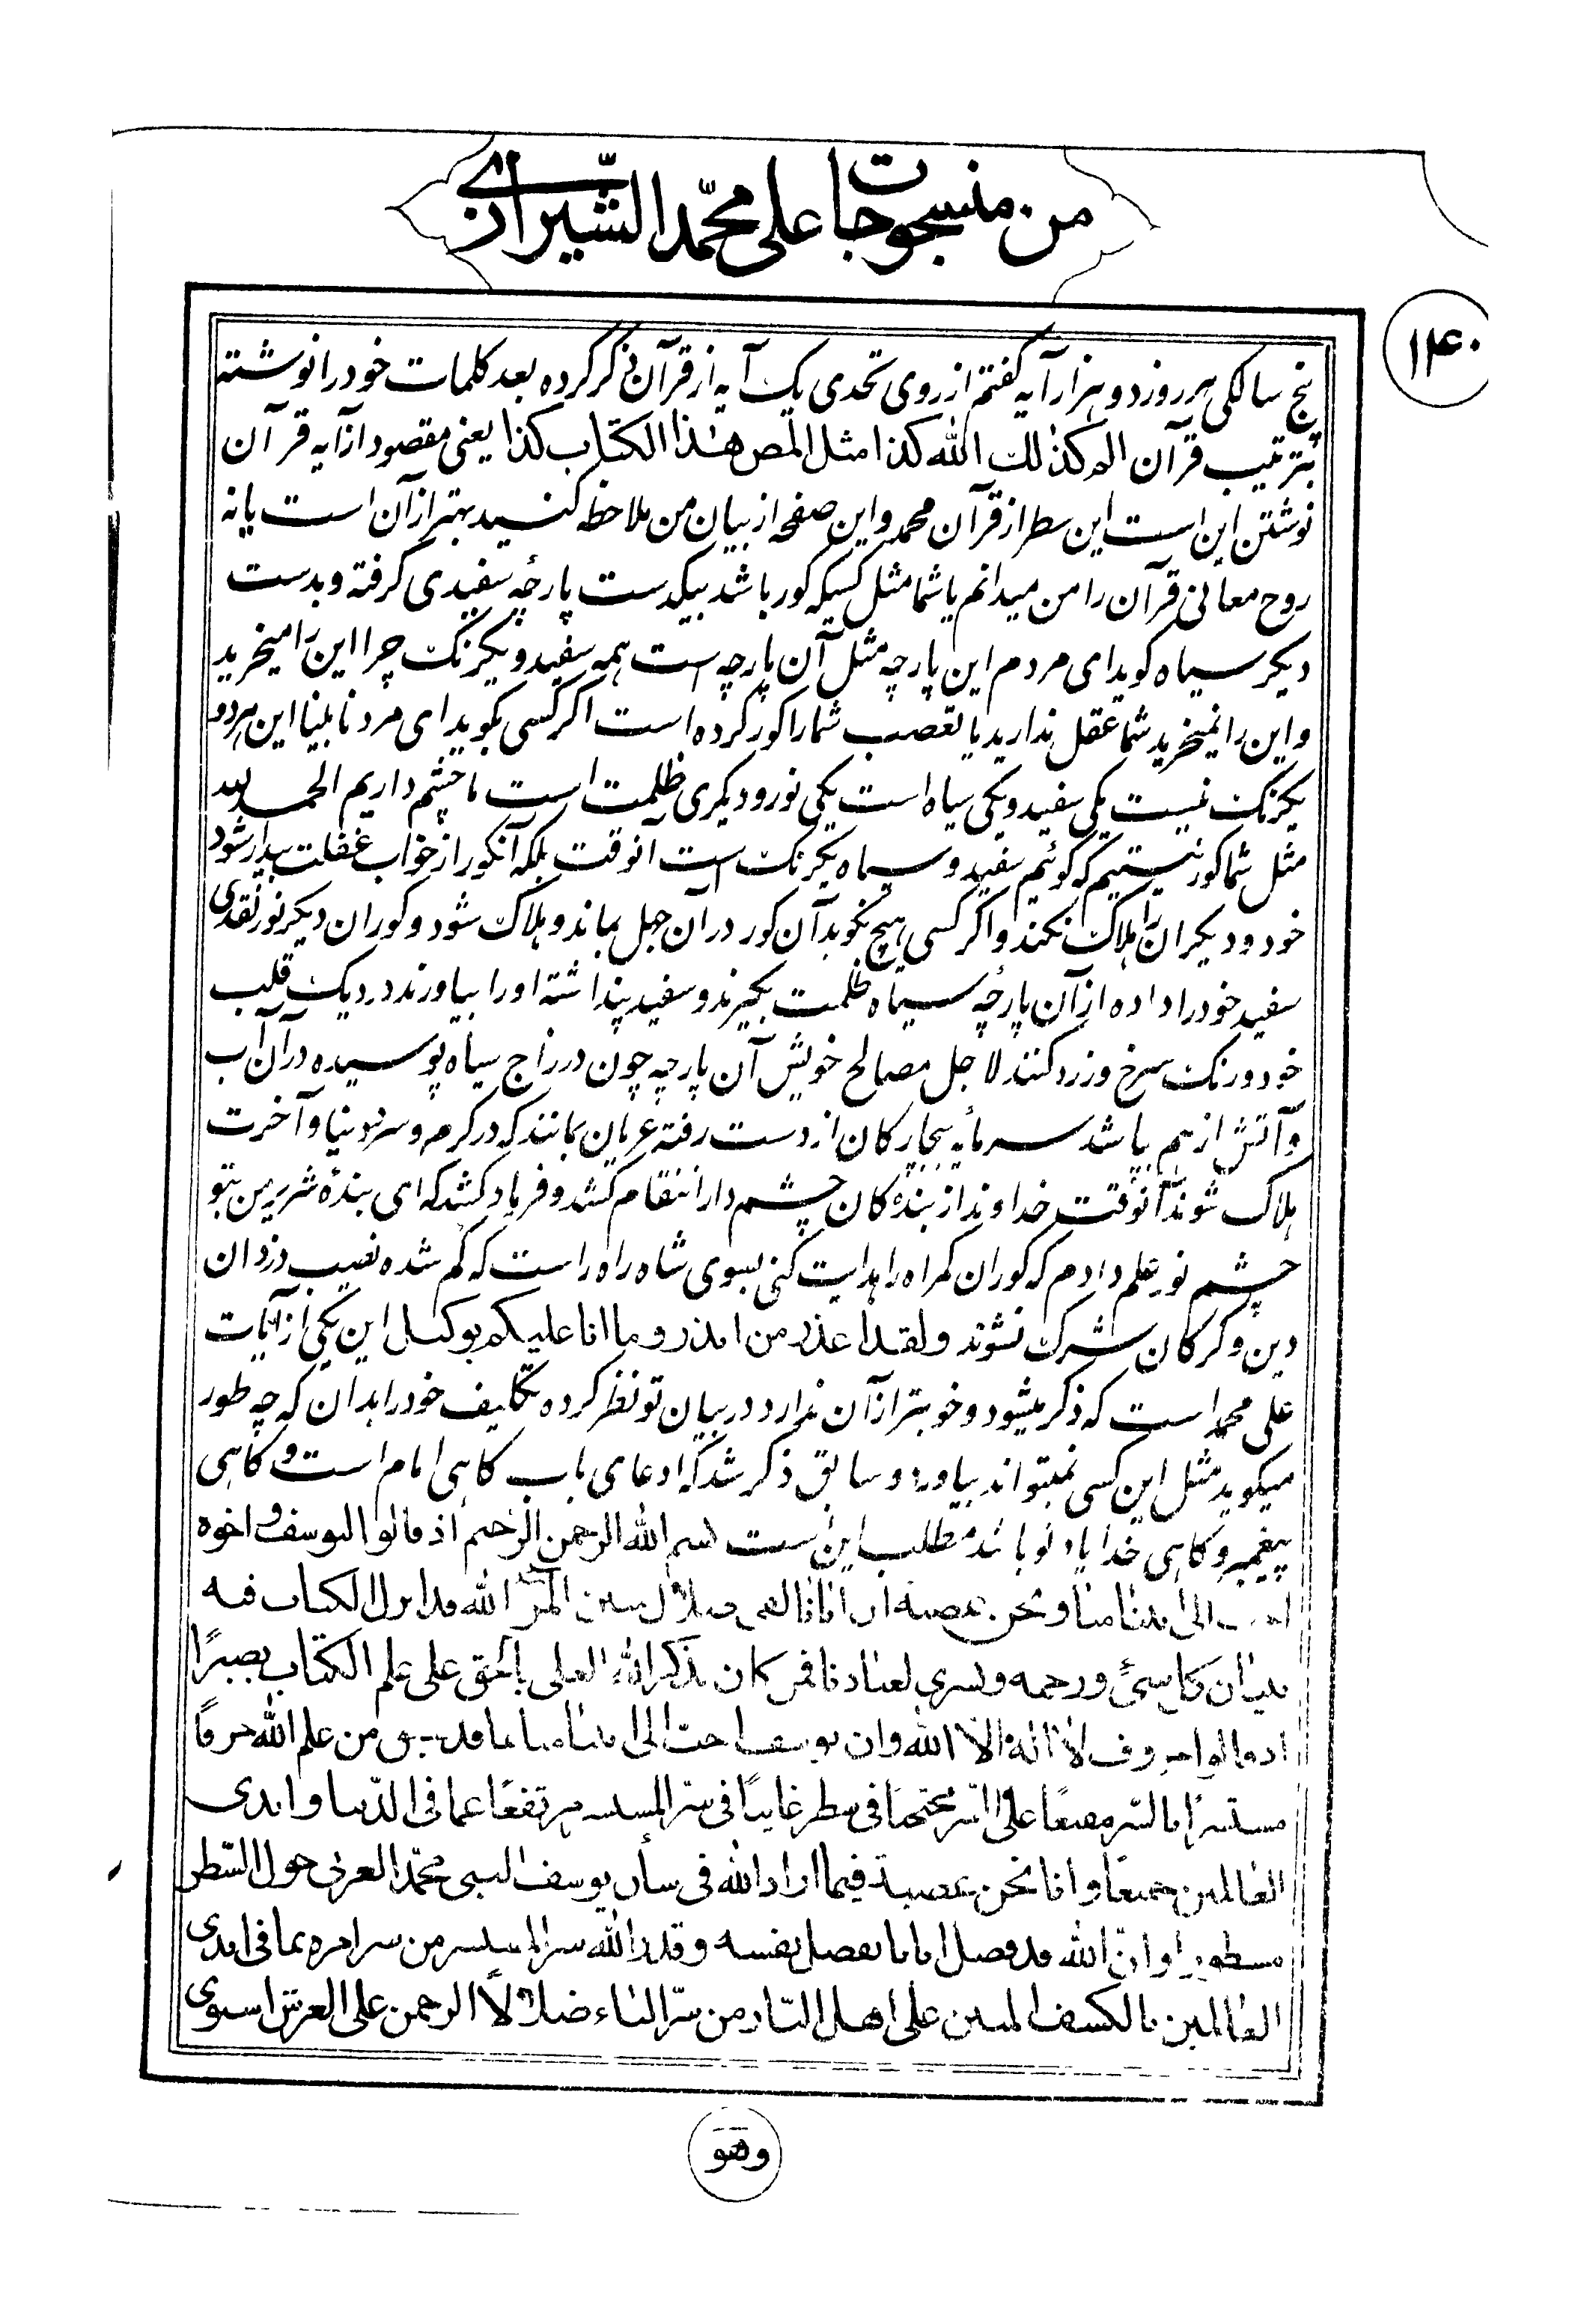 من منسوجات علی محمّد الشّیرازی
۱۴۰
پنج سالگی هر روز دو هزار آیه گفتم از روی تحدی یک آیه از قرآن ذکر کرده بعد کلمات خود را نوشته
بترتیب قرآن الم کذلک الله کذا مثل المص هذا الکتاب کذا یعنی مقصود از آیه قرآن
نوشتن این است این سطر از قرآن محمد و این صفحه از بیان من ملاحظه کنید بهتر از آن است یا نه
روح معانی قرآن را من میدانم یا شما مثل کسیکه کور باشد بیکدست پارچهٔ سفیدی گرفته و بدست
دیگر سیاه گوید ای مردم این پارچه مثل آن پارچه است همه سفید و یکرنگ چرا این را میخرید
و این را نمیخرید شما عقل ندارید یا تعصب شما را کور کرده است اگر کسی بگوید ای مرد نابینا این هردو
یکرنگ نیست یکی سفید و یکی سیاه است یکی نور و دیگری ظلمت است ما چشم داریم الحمد لله
مثل شما کور نیستیم که گوئیم سفید و سیاه یکرنگ است آنوقت بلکه آنکور از خواب غفلت بیدار شود
خود و دیگران را هلاک نکند و اگر کسی هیچ نگوید آن کور در آن جهل بماند و هلاک شود و کوران دیگر نور نقدی
سفید خود را داده از آن پارچهٔ سیاه ظلمت بگیرند و سفید پنداشته او را بیاورند در دیک قلب
خود و رنگ سرخ و زرد کنند لاجل مصالح خویش آن پارچه چون در زاج سیاه پوسیده در آن آب
و آتش از هم پاشد سرمایه بیچارگان از دست رفته عریان بمانند که در گرم و سرد دنیا و آخرت
هلاک شوند آنوقت خداوند از بندهٔ کان چشم دار انتقام کشد و فریاد کشد که ای بندهٔ شریر من بتو
چشم نور علم دادم که کوران گمراه را هدایت کنی بسوی شاه راه راست که گم شده نصیب دزدان
دین و گرگان شرک نشوند و لقد اعذر من انذر و ما انا علیکم بوکیل این یکی از آیات
علی محمد است که ذکر میشود و خوبتر از آن ندارد در بیان تو نظر کرده تکلیف خود را بدان که چه طور
میگوید مثل این کسی نمیتواند بیاورد و سابق ذکر شد که ادعای باب گاهی امام است و گاهی
پیغمبر و گاهی خدا یاد تو باشد مطلب این است بسم الله الرحمن الرحیم اذ قالوا لیوسف و اخوه
احب الی ابینا منا و نحن عصبه ان ابانا لفی ضلال مبین المر الله قد انزل الکتاب فیه
تبیان کل شئ و رحمه و بشری لعبادنا فمن کان بذکر الله العلی بالحق علی علم الکتاب بصیرًا
اذ قالوا حروف لا اله الا الله و ان یوسف احب الی ابینا منا بما قد سبق من علم الله حرفا
مستسرًا بالسّر مقنعًا علی السّر محتجبًا فی سطر غایبًا فی سرّ المستسر مرتفعًا عما فی الدّنیا و ایدی
العالمین جمیعًا و انا نحن عصبة فیما اراد الله فی شأن یوسف النبی محمّد العربی حول السّطر
مسطورا و انّ الله قد فضل ابانا بفضل نفسه و قدر الله سر المستسر من سر امره بما فی ایدی
العالمین بالکشف المبین علی اهل النّار من سرّ الناء ضلالًا الرحمن علی العرش استوی
وهو